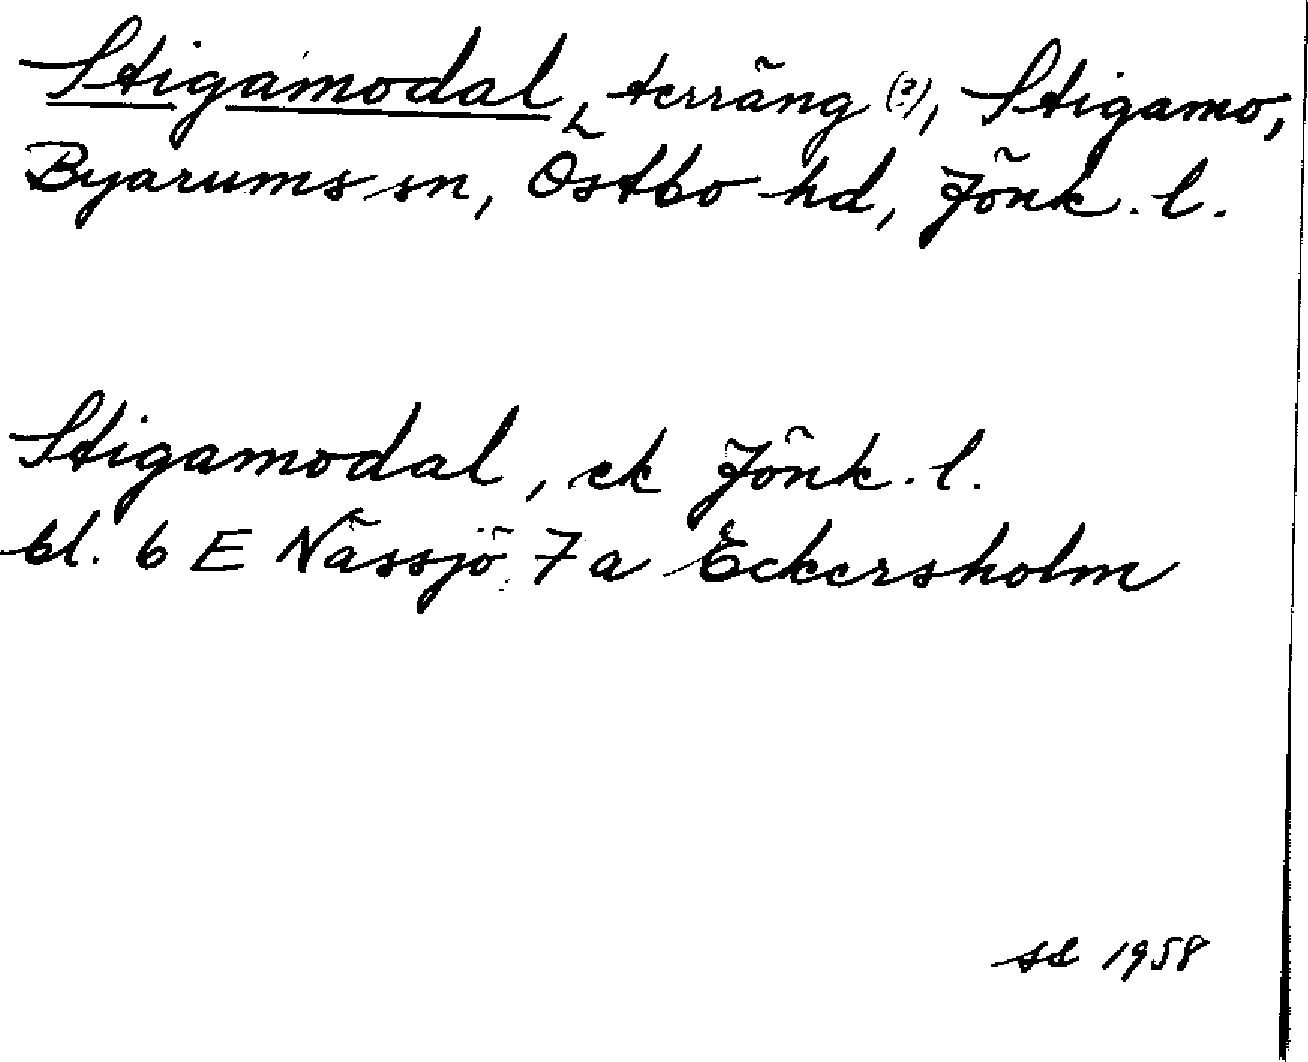 Stigamodal, terräng (?), Stigamo,
Byarums sn, Östbo hd, Jönk. l.
Stigamodal, ek Jönk. l.
bl. 6 E Nässjö 7 a Eckersholm
1958